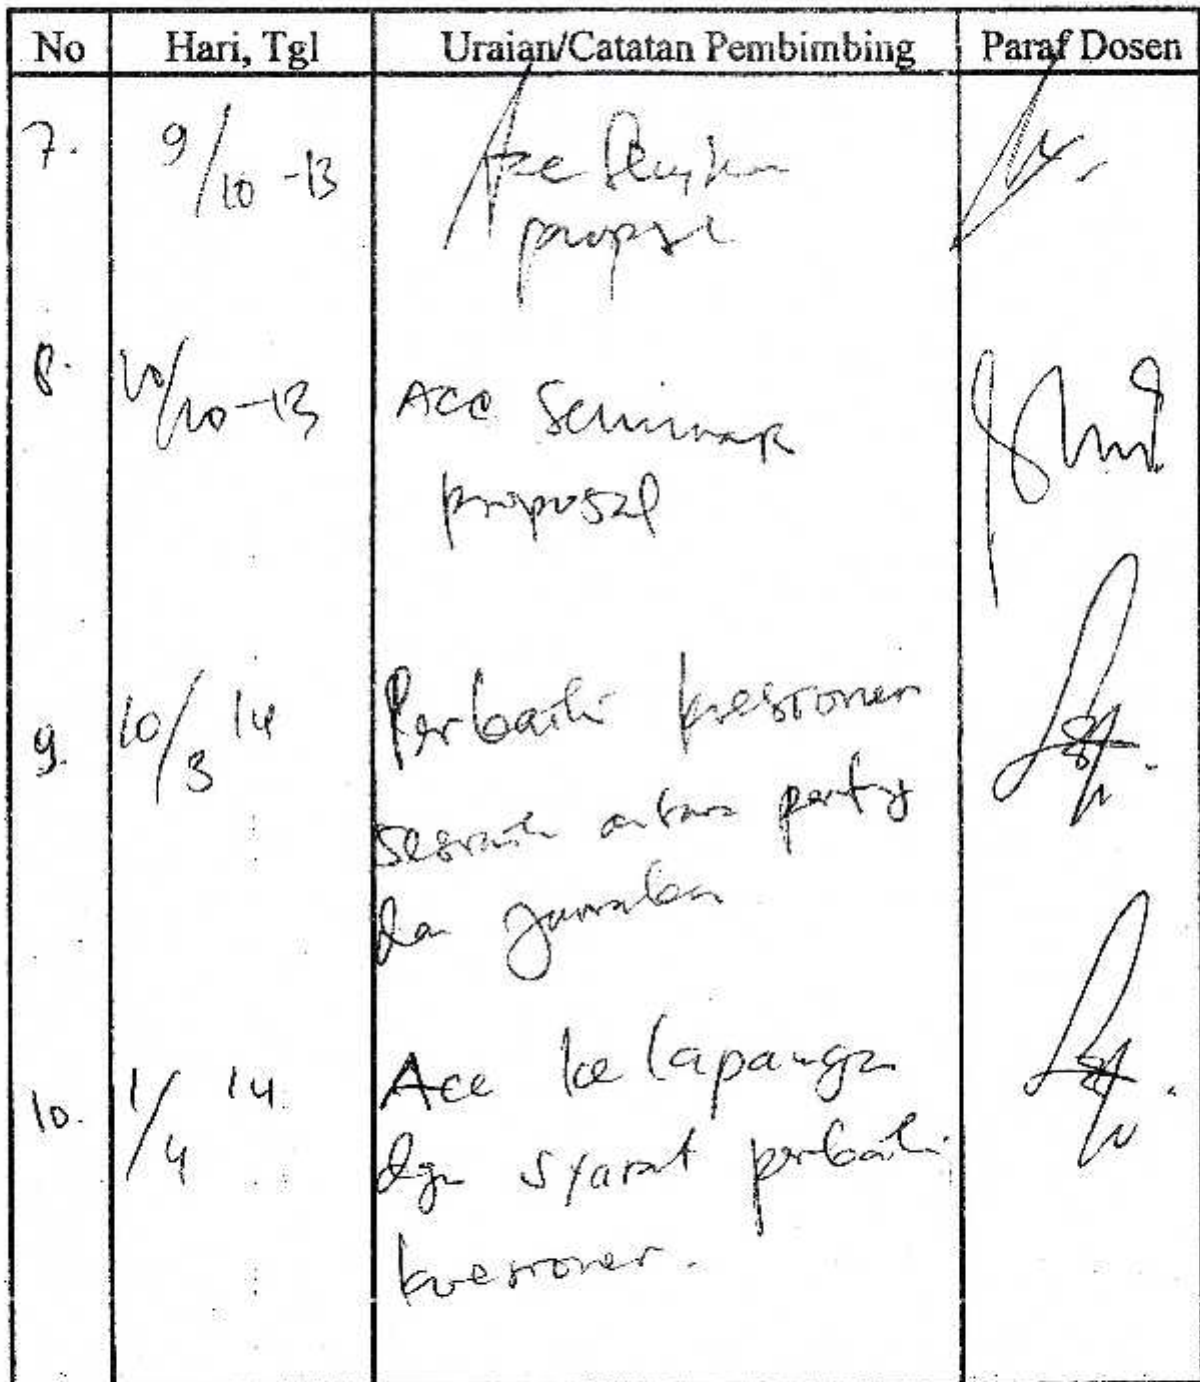 No Hari, Tgl Uraian/Catatan Pembimbing Paraf Dosen
7. 9/10 -13 Acc
8. 10/10-13 Acc Seminar
proposal
9. 10/3 14 Perbaiki kuesioner
antara
dan jawaban
10. 1/4 14 Acc ke lapangan
dgn syarat perbaiki
kuesioner.